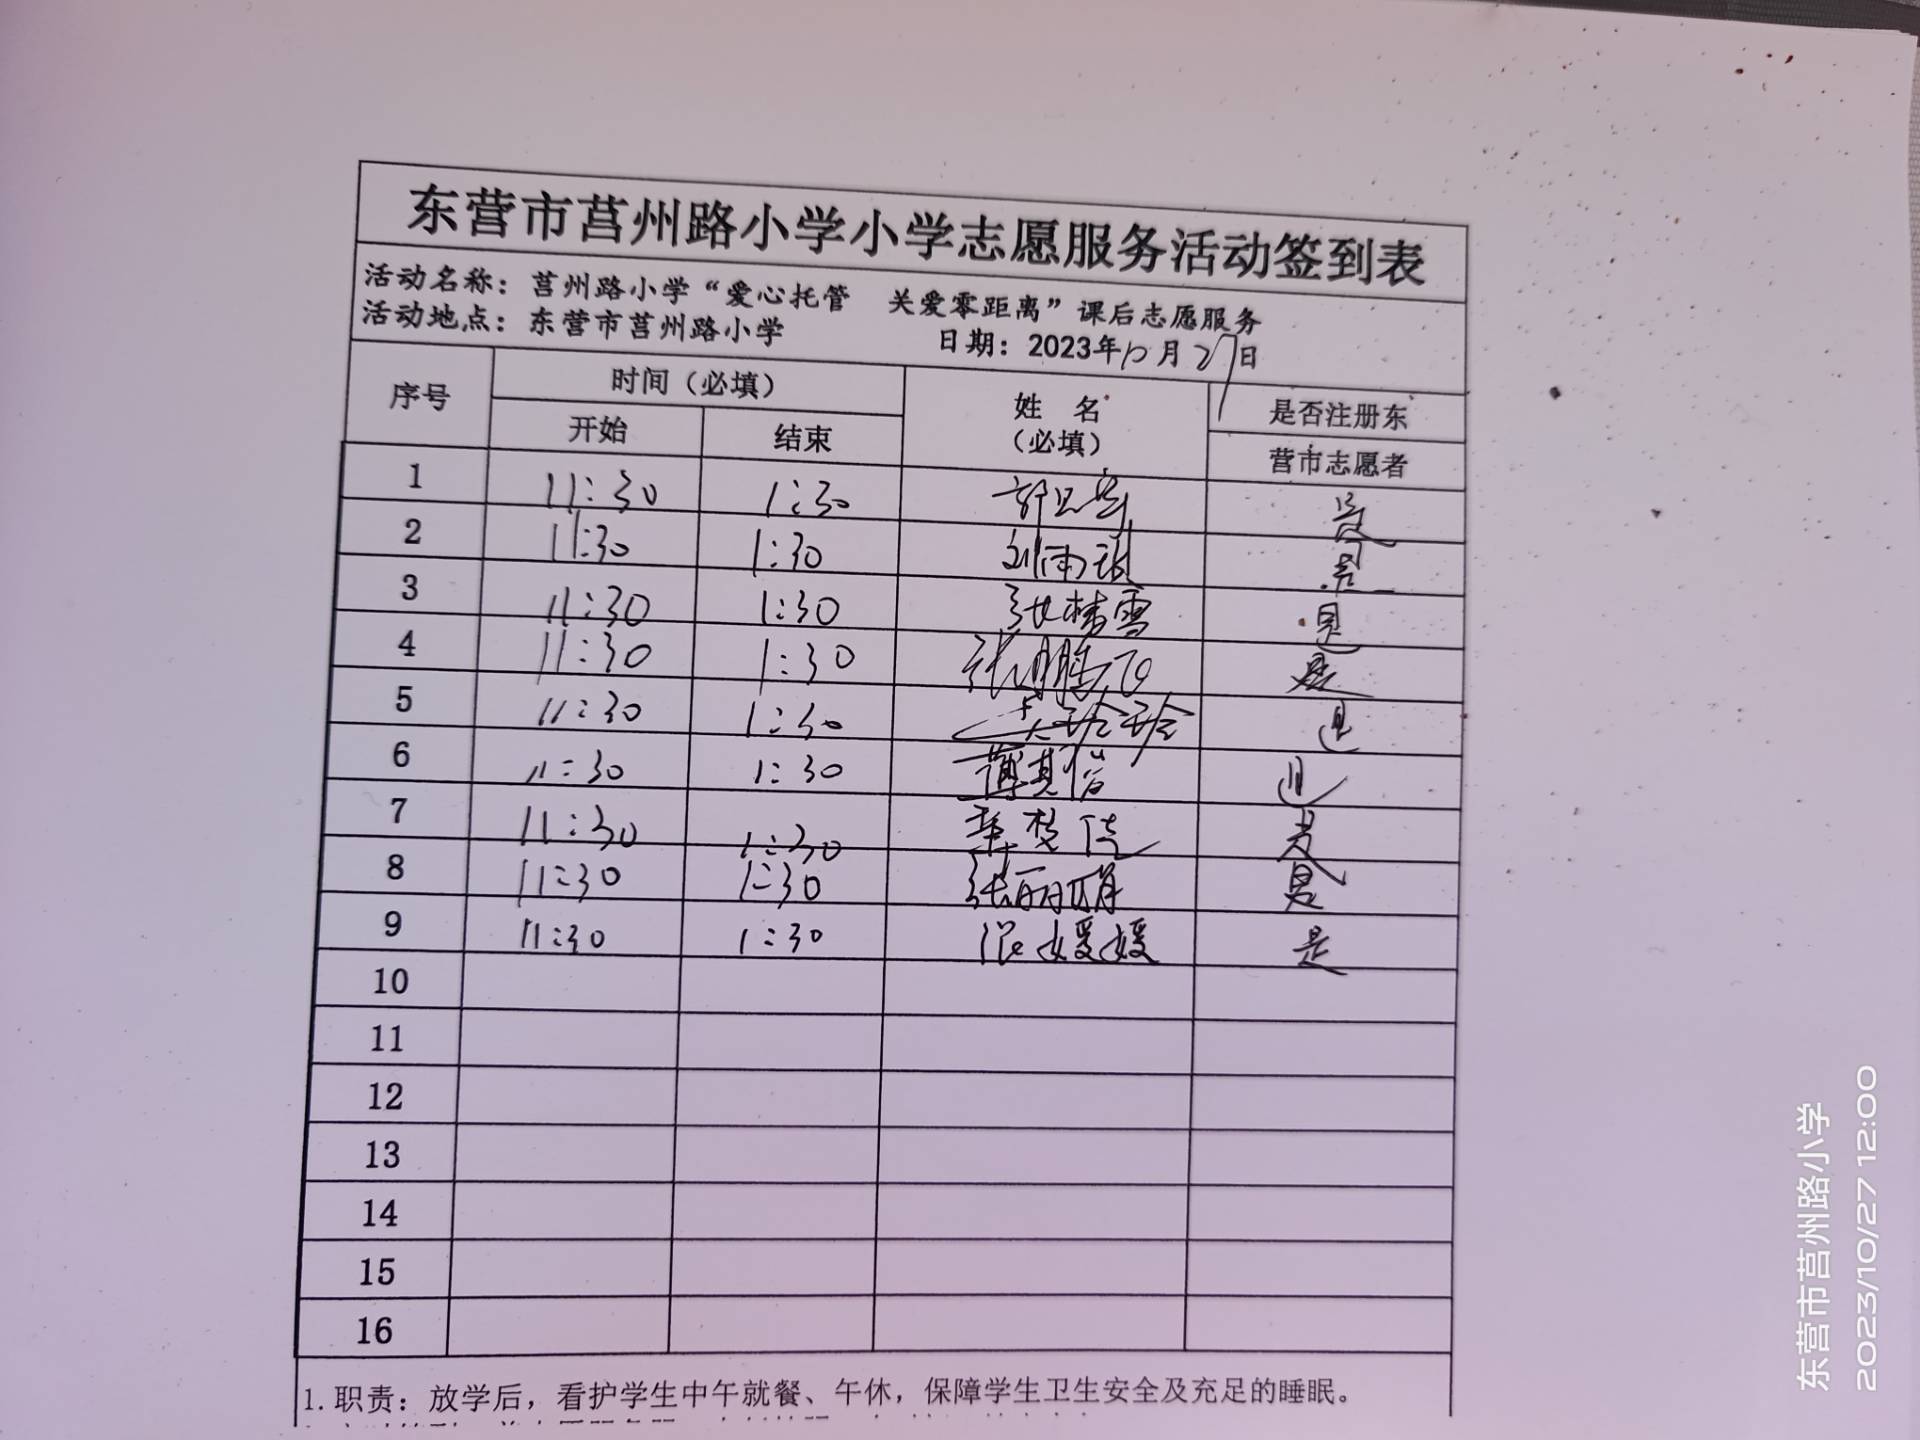 东营市莒州路小学小学志愿服务活动签到表
活动名称：莒州路小学“爱心托管 关爱零距离”课后志愿服务
活动地点：东营市莒州路小学 日期：2023年10月27日
序号 时间（必填） 姓名（必填） 是否注册东营市志愿者
开始 结束
1 11:30 1:30 是
2 11:30 1:30 刘雨 是
3 11:30 1:30 张梦雪 是
4 11:30 1:30 张鹏飞 是
5 11:30 1:30 玲玲 是
6 11:30 1:30 薄其信 是
7 11:30 1:30 是
8 11:30 1:30 张丽娟 是
9 11:30 1:30 张媛媛 是
10
11
12
13
14
15
16
1.职责：放学后，看护学生中午就餐、午休，保障学生卫生安全及充足的睡眠。
东营市莒州路小学
2023/10/27 12:00